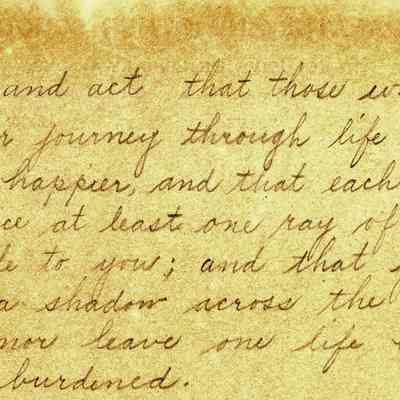 and act that those
journey through life
happier, and that each
at least one ray of
to you; and that
a shadow across the
nor leave one life
burdened.